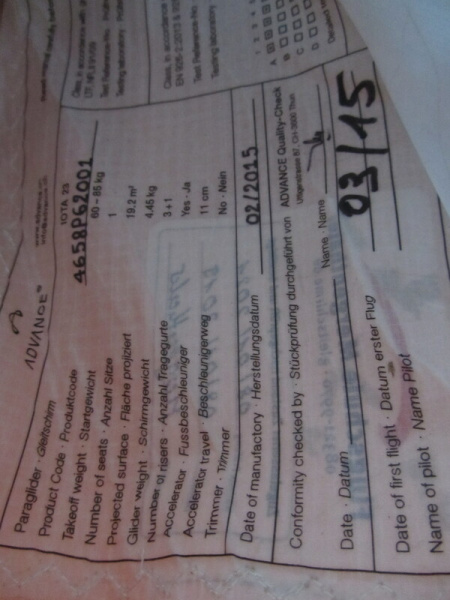 ADVANCE
www.advance.ch
Paraglider · Gleitschirm IOTA 23
Product Code · Produktcode 4658P62001
Takeoff weight · Startgewicht 60 – 85 kg
Number of seats · Anzahl Sitze 1
Projected surface · Fläche projiziert 19.2 m²
Glider weight · Schirmgewicht 4.45 kg
Number of risers · Anzahl Tragegurte 3+1
Accelerator · Fussbeschleuniger Yes · Ja
Accelerator travel · Beschleunigerweg 11 cm
Trimmer · Trimmer No · Nein
Date of manufactory · Herstellungsdatum 02/2015
Conformity checked by · Stückprüfung durchgeführt von ADVANCE Quality-Check
Uttigenstrasse 87, CH-3600 Thun
Date · Datum Name · Name
Date of first flight · Datum erster Flug 03/15
Name of pilot · Name Pilot
Class, in accordance
LTF NFL
Test Reference-No
Testing laboratory
Class, in accordance
EN 926-2:2013 &
Test Reference-No
Testing laboratory
A
B
C
D